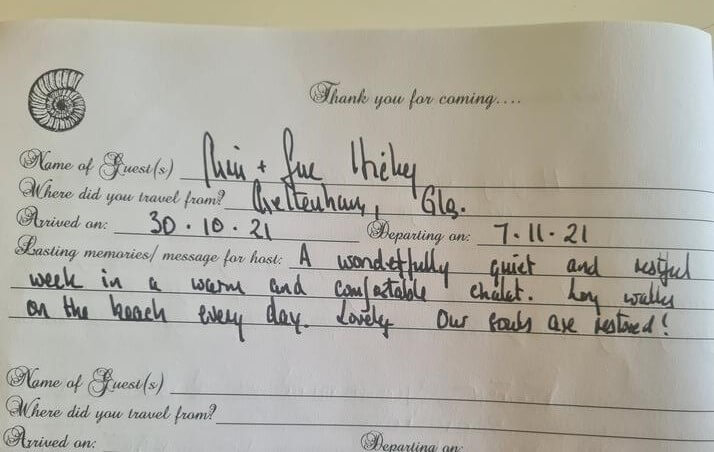 Thank you for coming....
Name of Guest(s) + Sue
Where did you travel from? Cheltenham, Glos.
Arrived on: 30.10.21 Departing on: 7.11.21
Lasting memories/ message for host: A wonderfully quiet and restful
week in a warm and comfortable chalet. Long walks
on the beach every day. Lovely Our souls are restored!
Name of Guest(s)
Where did you travel from?
Arrived on: Departing on: